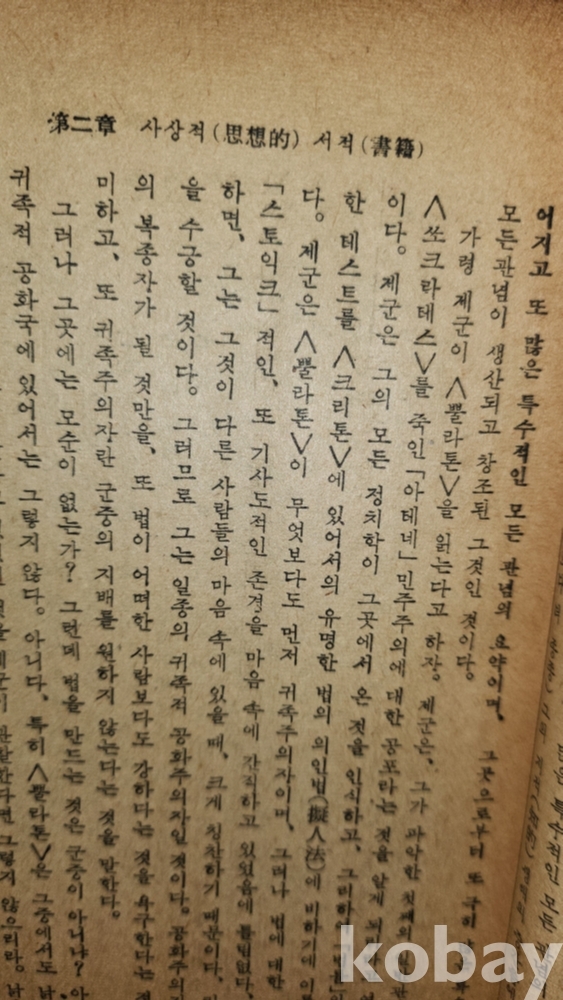 第二章 사상적(思想的) 서적(書籍)
어지고 또 많은 특수적인 모든 관념의 요약이며, 그곳으로부터 또
모든관념이 생산되고 창조된 그것인 것이다.
가령 제군이 <뿔라톤>을 읽는다고 하자. 제군은, 그가 파악한
<쏘크라테스>를 죽인 「아테네」 민주주의에 대한 공포라는 것을 알게
이다. 제군은 그의 모든 정치학이 그곳에서 온 것을 인식하고, 그리하여
한 테스트를 <크리톤>에 있어서의 유명한 법의 의인법(擬人法)에 비하기에
다. 제군은 <뿔라톤>이 무엇보다도 먼저 귀족주의자이며, 그러나 법에 대한
「스토익크」적인, 또 기사도적인 존경을 마음 속에 간직하고 있었음에 틀림없다.
하면, 그는 그것이 다른 사람들의 마음 속에 있을 때, 크게 칭찬하기 때문이다.
을 수긍할 것이다. 그러므로 그는 일종의 귀족적 공화주의자일 것이다. 공화주의
의 복종자가 될 것만을, 또 법이 어떠한 사람보다도 강하다는 것을 욕구한다는
미하고, 또 귀족주의자란 군중의 지배를 원하지 않는다는 것을 말한다.
그러나 그곳에는 모순이 없는가? 그런데 법을 만드는 것은 군중이 아니냐? 아
귀족적 공화국에 있어서는 그렇지 않다. 아니다, 특히 <뿔라톤>은 그중에서도
그렇지 않으리라.
특수적인 모든
kobay